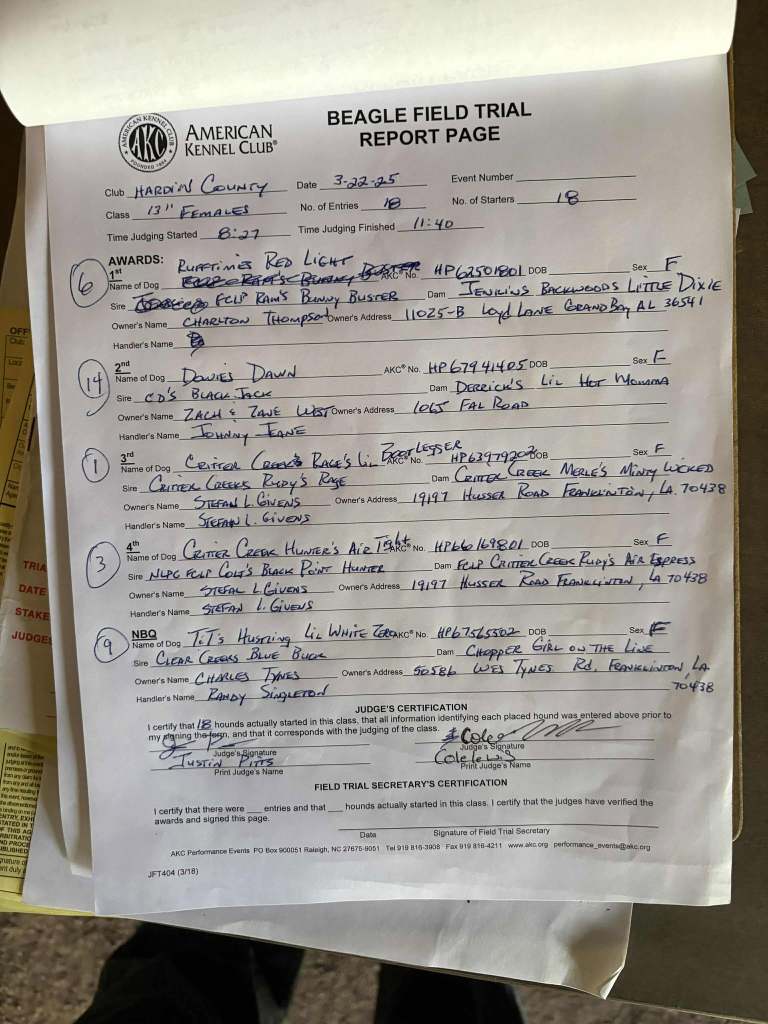 AMERICAN KENNEL CLUB
AKC
FOUNDED 1884
AMERICAN
KENNEL CLUB®
BEAGLE FIELD TRIAL
REPORT PAGE
Club HARDIN COUNTY Date 3-22-25 Event Number
Class 13" FEMALES No. of Entries 18 No. of Starters 18
Time Judging Started 8:27 Time Judging Finished 11:40
AWARDS: RUFFTIMES RED LIGHT
6 1st
Name of Dog AKC® No. HP62501801 DOB Sex F
Sire FCLP RAM'S BUNNY BUSTER Dam JENKINS BACKWOODS LITTLE DIXIE
Owner's Name CHARLTON THOMPSON Owner's Address 11025-B LOYD LANE GRAND BAY AL 36541
Handler's Name
14 2nd
Name of Dog DOWIES DAWN AKC® No. HP67941405 DOB Sex F
Sire CD'S BLACK JACK Dam DERRICK'S LIL HOT MOMMA
Owner's Name ZACH & ZANE WEST Owner's Address 1065 FAL ROAD
Handler's Name JOHNNY JEANE
1 3rd
Name of Dog CRITTER CREEK'S RAGE'S LIL BOOTLEGGER AKC® No. HP63979202 DOB Sex F
Sire CRITTER CREEKS RUDY'S RAGE Dam CRITTER CREEK MERLE'S MINDY WICKED
Owner's Name STEFAN L. GIVENS Owner's Address 19197 HUSSER ROAD FRANKLINTON, LA. 70438
Handler's Name STEFAN L. GIVENS
3 4th
Name of Dog CRITER CREEK HUNTER'S AIR TIGHT AKC® No. HP66169801 DOB Sex F
Sire NLPC FCLP COLT'S BLACK POINT HUNTER Dam FCLP CRITTER CREEK RUDY'S AIR EXPRESS
Owner's Name STEFAL L. GIVENS Owner's Address 19197 HUSSER ROAD FRANKLINTON, LA 70438
Handler's Name STEFAN L. GIVENS
9 NBQ
Name of Dog TNT'S HUSTLING LIL WHITE ZERO AKC® No. HP67565502 DOB Sex F
Sire CLEAR CREEKS BLUE BUCK Dam CHOPPER GIRL ON THE LINE
Owner's Name CHARLES TYNES Owner's Address 50586 WES TYNES Rd. FRANKLINTON LA
70438
Handler's Name RANDY SINGLETON
JUDGE'S CERTIFICATION
I certify that 18 hounds actually started in this class, that all information identifying each placed hound was entered above prior to
my signing the form, and that it corresponds with the judging of the class.
Cole
Judge's Signature Judge's Signature
JUSTIN PITTS Cole lewis
Print Judge's Name Print Judge's Name
FIELD TRIAL SECRETARY'S CERTIFICATION
I certify that there were ___ entries and that ___ hounds actually started in this class. I certify that the judges have verified the
awards and signed this page.
Date Signature of Field Trial Secretary
AKC Performance Events PO Box 900051 Raleigh, NC 27675-9051 Tel 919 816-3908 Fax 919 816-4211 www.akc.org performance_events@akc.org
JFT404 (3/18)
TRIA
DATE
STAKE
JUDGE